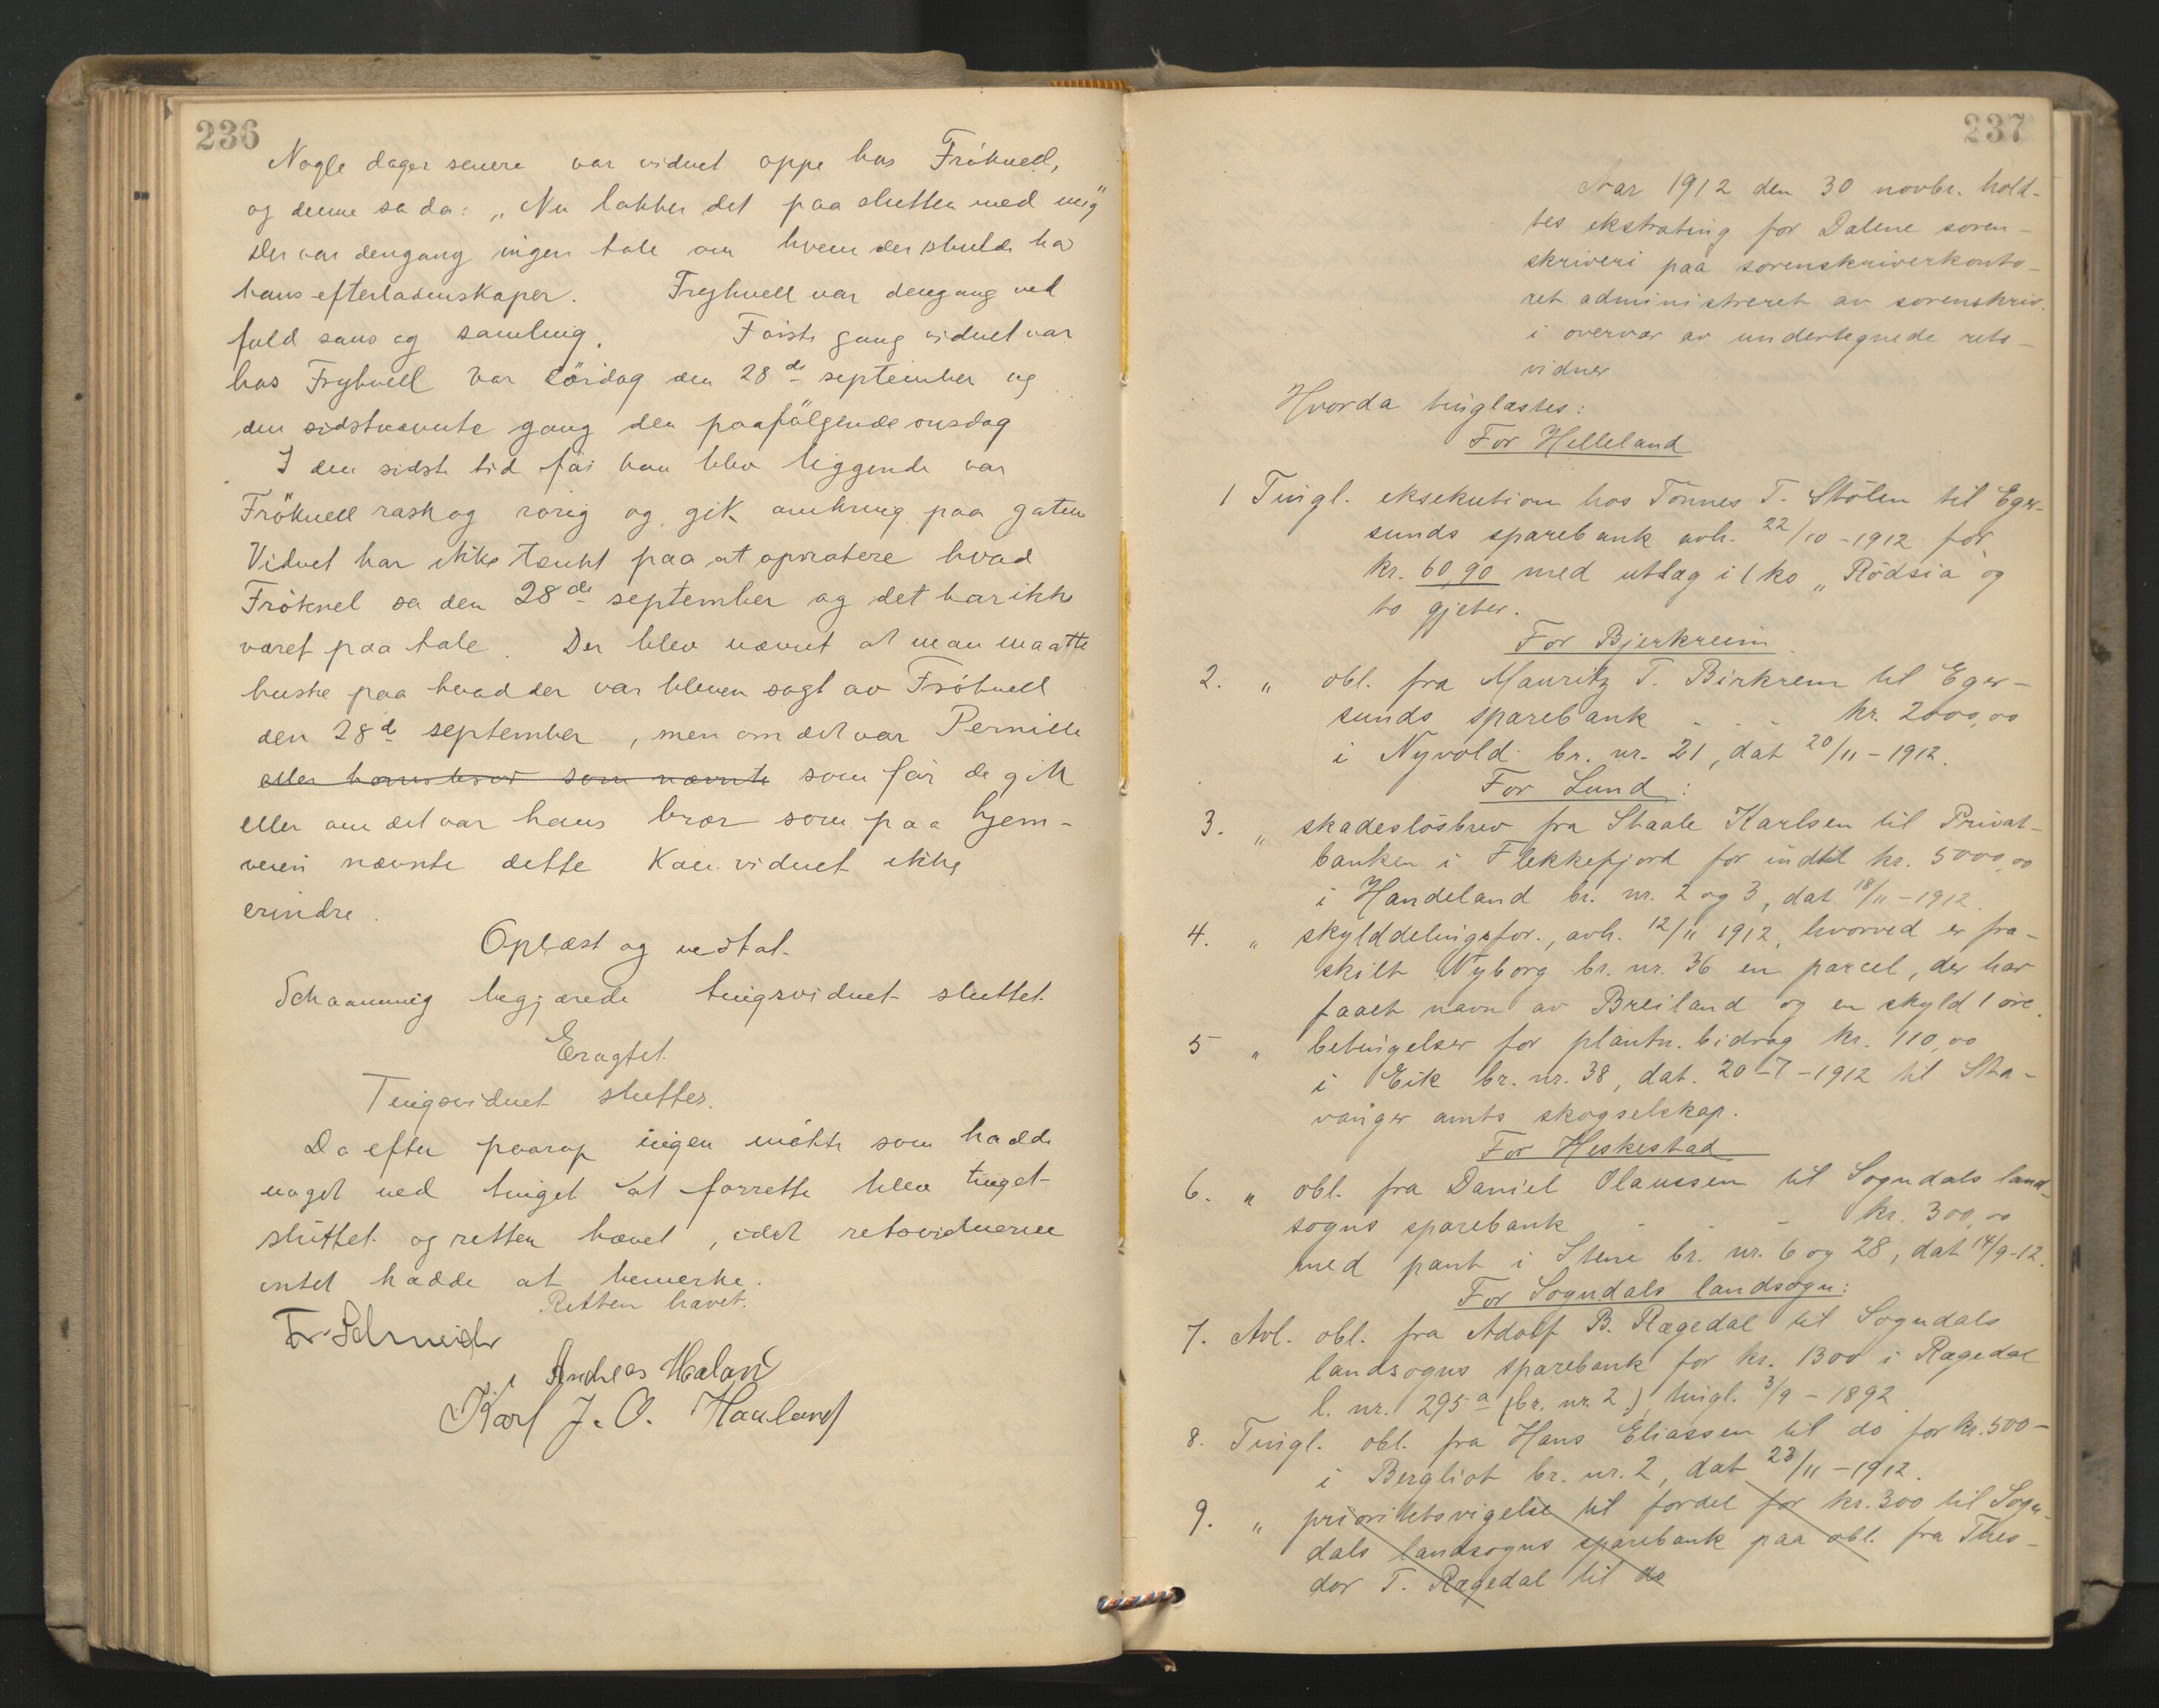 236
Nogle dager senere var vidnet oppe hos Fröknell,
og denne sa da: „Nu lakker det paa slutten med mig"
Der var dengang ingen tale om hvem der skulde ha
hans efterladenskaper. Fryknell var dengang ved
fuld sans og samling. Förste gang vidnet var
hos Fryknell var Lördag den 28de september og
den sidstnævnte gang den paafölgende onsdag
I den sidste tid för han blev liggende var
Fröknell rask og rörig og gik omkring paa gaten
Vidnet har ikke tænkt paa at opnotere hvad
Fröknel sa den 28de september og det har ikke
været paa tale. Der blev nævnt at man maatte
huske paa hvad der var bleven sagt av Fröknell
den 28de september, men om det var Pernille
eller hans bror som nævnte som för de gik
eller om det var hans bror som paa hjem-
veien nævnte dette kan vidnet ikke
erindre.
Oplæst og vedtat.
Schaanning begjærede tingsvidnet sluttet.
Eragtet
Tingsvidnet sluttes.
Da efter paarop ingen mötte som hadde
noget ved tinget at forrette blev tinget
sluttet og retten hævet, idet retsvidnerne
intet hadde at bemerke.
Retten hævet.
Fr. Schneider
Andreas Haland
Karl J. O. Hauland
237
Aar 1912 den 30 novbr. hold-
tes ekstrating for Dalene soren-
skriveri paa sorenskriverkonto-
ret administreret av sorenskriv.
i overvær av undertegnede rets-
vidner
Hvorda tinglæstes:
For Helleland
1 Tingl. eksekution hos Tönnes T. Stölen til Eger-
sunds sparebank avh. 22/10-1912 for
kr. 60,90 med utlæg i 1 ko „Rödsia" og
to gjeter.
For Bjerkreim
2. " obl. fra Mauritz T. Birkrem til Eger-
sunds sparebank - - - kr. 2000,00
i Nyvold br. nr. 21, dat 20/11-1912.
For Lund:
3. " skadeslösbrev fra Staale Karlsen til Privat-
banken i Flekkefjord for indtil kr. 5000,00
i Handeland br. nr. 2 og 3, dat 18/11-1912.
4. " skylddelingsfor., avh. 12/11 1912, hvorved er fra-
skilt Nyborg br. nr. 36 en parcel, der har
faaet navn av Breiland og en skyld 1 öre.
5 " betingelser for plantn. bidrag kr. 110,00
i Eik br. nr. 38, dat. 20-7-1912 til Sta-
vanger amts skogselskap.
For Heskestad
6. " obl. fra Daniel Olaussen til Sogndals land-
sogns sparebank - - - kr. 300,00
med pant i Stene br. nr. 6 og 28, dat 14/9-12.
For Sogndals landsogn:
7. Avl. obl. fra Adolf B. Rægedal til Sogndals
landsogns sparebank for kr. 1300 i Rægedal
l. nr. 295a (br. nr. 2), tingl. 3/9-1892.
8. Tingl. obl. fra Hans Eliassen til do for kr. 500-
i Bergliot br. nr. 2, dat 23/11-1912.
9. " prioritetsvigelse til fordel for kr. 300 til Sogn-
dals landsogns sparebank paa obl. fra Theo-
dor T. Rægedal til do